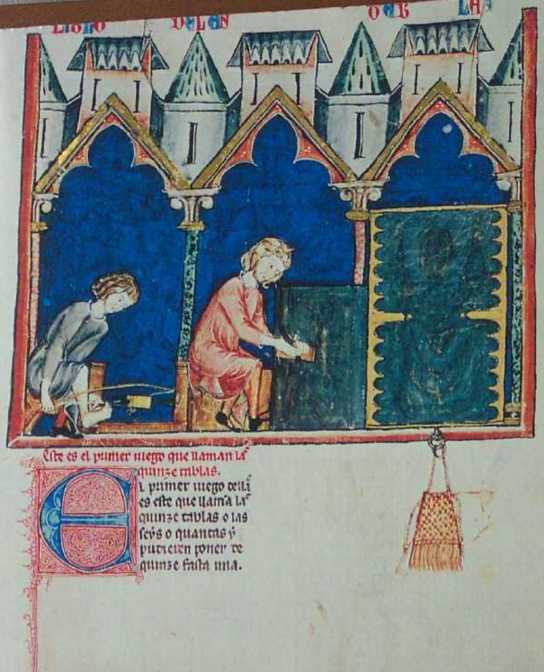 LIBRO DELEN
Este es el primer iuego que llaman las
quinze tablas.
El primer iuego dellas
es este que llama las
quinze tablas o las
seys o quantas y
pudieren poner de
quinze fasta una.